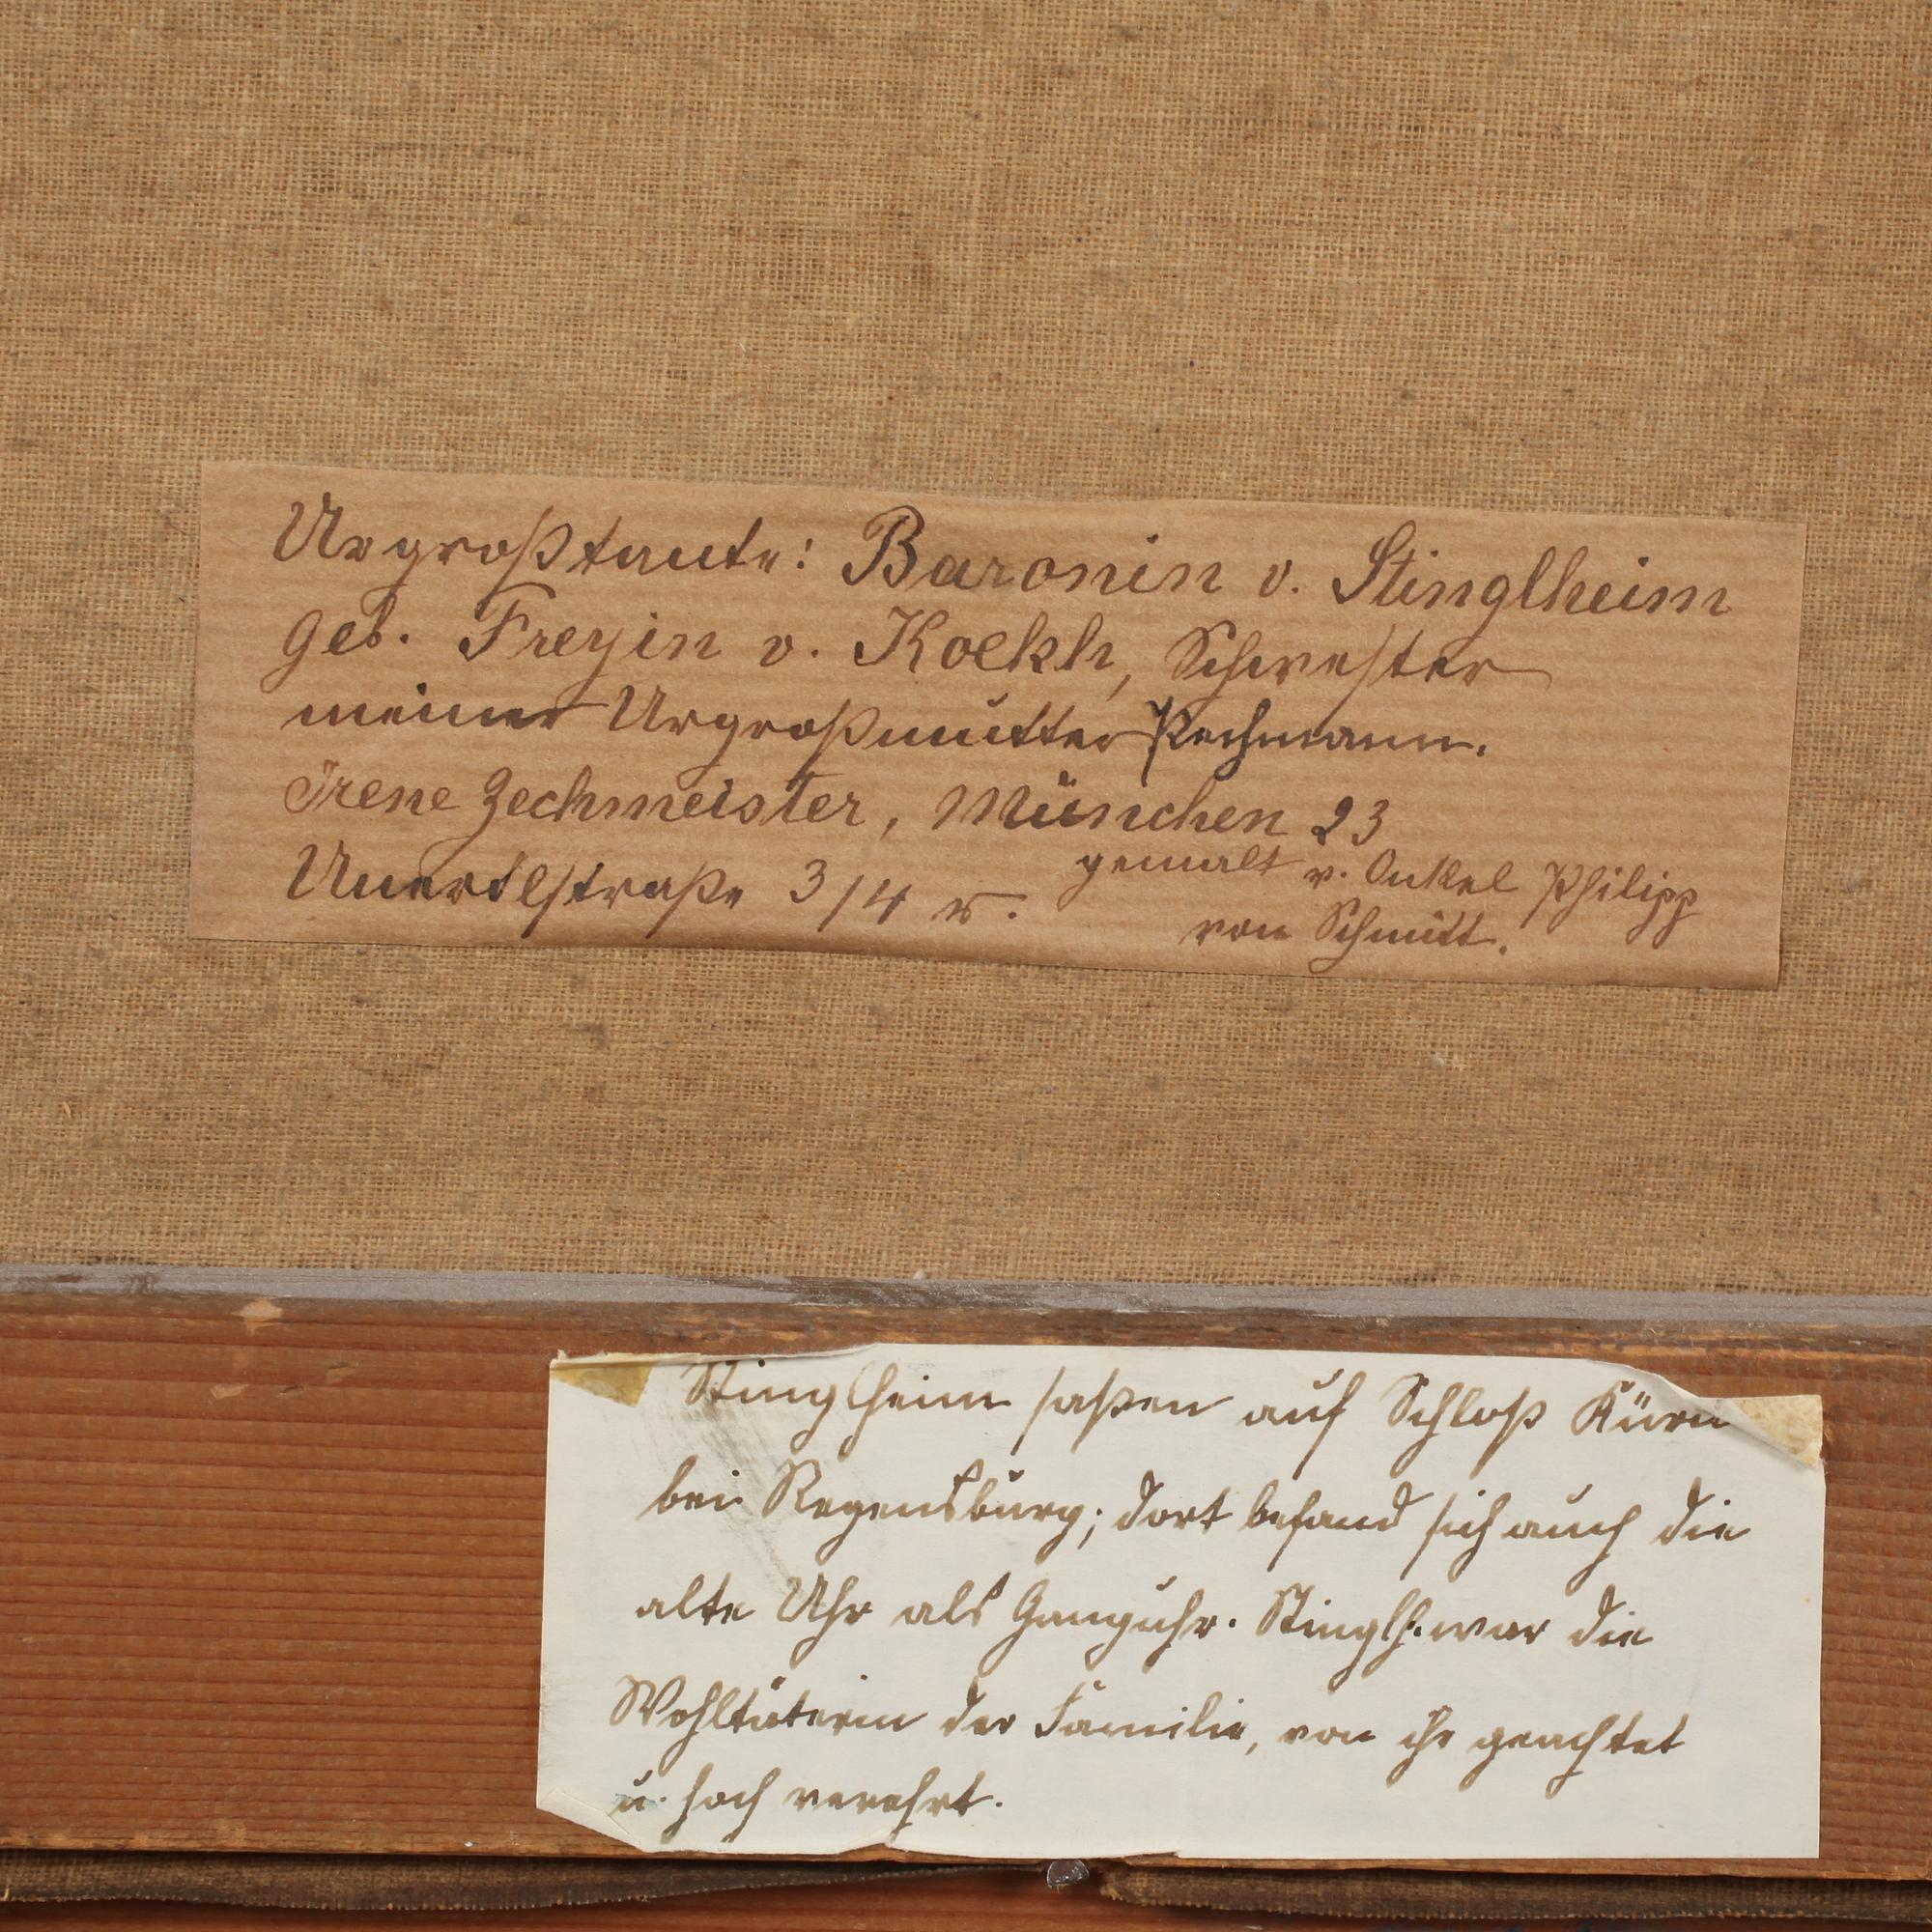 Urgroßtante: Baronin v. Stinglheim
geb. Freyin v. Koekh, Schwester
meiner Urgroßmutter Pechmann.
Irene Zechmeister, München 23
Unertlstraße 3/4 r.
gemalt v. Onkel Philipp
von Schmitt.
Stinglheim saßen auf Schloß Kürn
bei Regensburg; dort befand sich auch die
alte Uhr als Ganguhr. Stinglh. war die
Wohltäterin der Familie, von ihr geachtet
u. hoch verehrt.